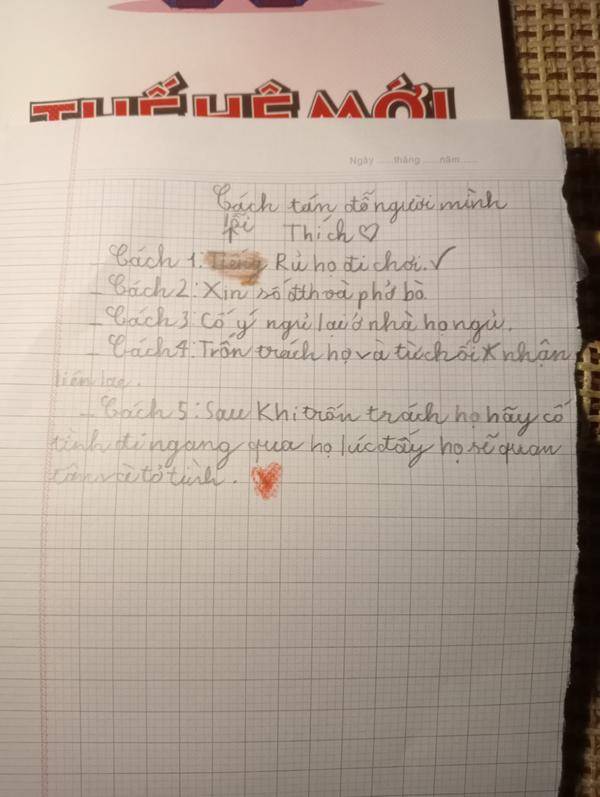 THẾ HỆ MỚI
Ngày ......tháng ......năm ......
Cách tán đổ người mình
Thích ♡
- Cách 1. Rủ họ đi chơi. ✓
- Cách 2: Xin số đth và phở bò
- Cách 3: Cố ý ngủ lại ở nhà họ ngủ.
- Cách 4: Trốn trách họ và từ chối nhận
liên lạc.
- Cách 5: Sau Khi trốn trách họ hãy cố
tình đi ngang qua họ lúc đấy họ sẽ quan
tâm và tỏ tình.